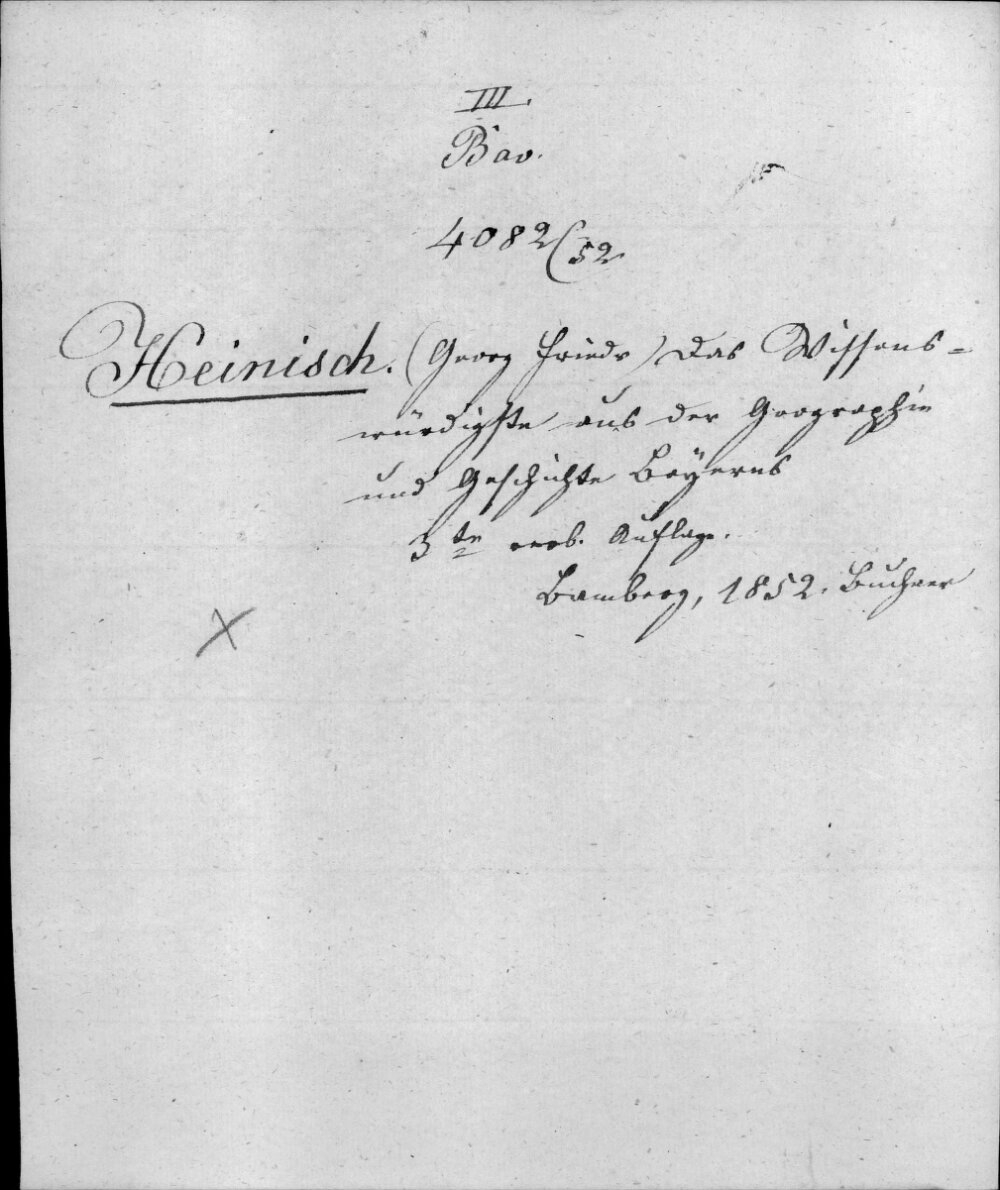 III.
Bav.
4082(52
Heinisch. (Georg Friedr) Das Wissens=
würdigste aus der Geographie
und Geschichte Bayerns
3te verb. Auflage.
Bamberg, 1852. Buchner